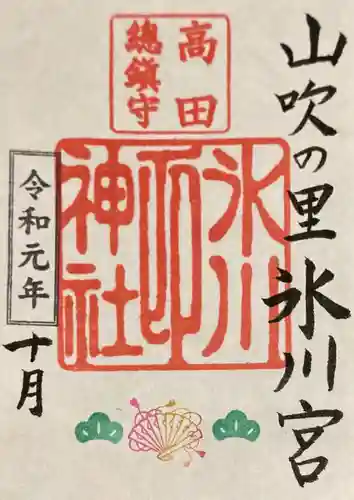 山吹の里氷川宮
高田
總鎮守
氷川
神社
令和元年
十月